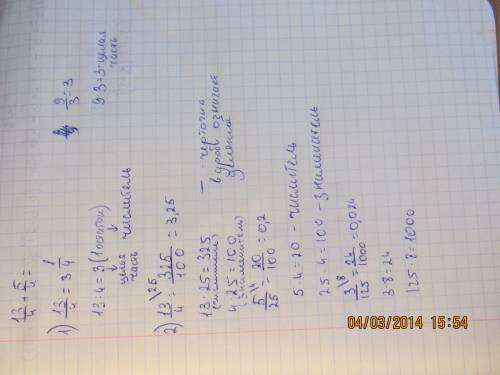 13/4 + 5/4 =
1) 13/4 = 3 1/4
13:4=3 (1 остаток)
целая часть
числитель
9/3 = 3
9:3=3-целая
часть
2) 13/4 \25 = 325/100 = 3,25
13·25=325
(числитель)
4·25=100
(знаменатель)
— - черточка
в дробь означает
деления
5/25 \4 = 20/100 = 0,2
5·4=20 - числитель
25·4=100 - знаминатель
3/125 \8 = 24/1000 = 0,024
3·8=24
125·8=1000
04/03/2014 15:54